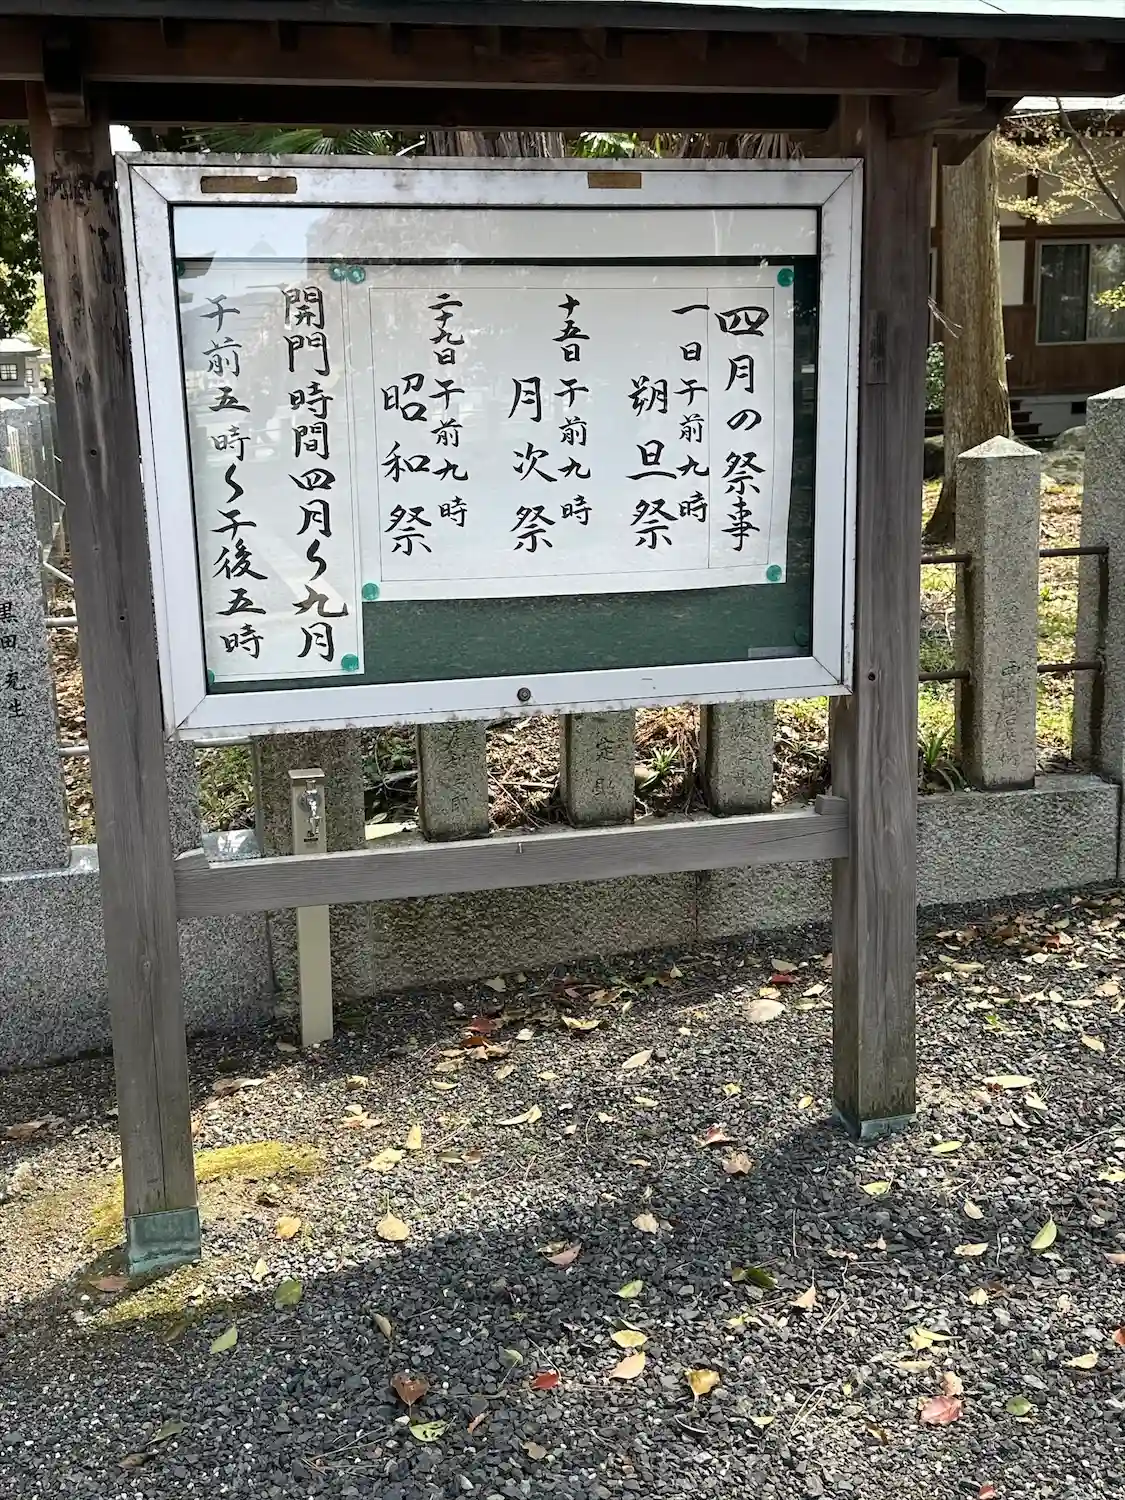 四月の祭事
一日午前九時
朔旦祭
十五日午前九時
月次祭
二十九日午前九時
昭和祭
開門時間四月〜九月
午前五時〜午後五時